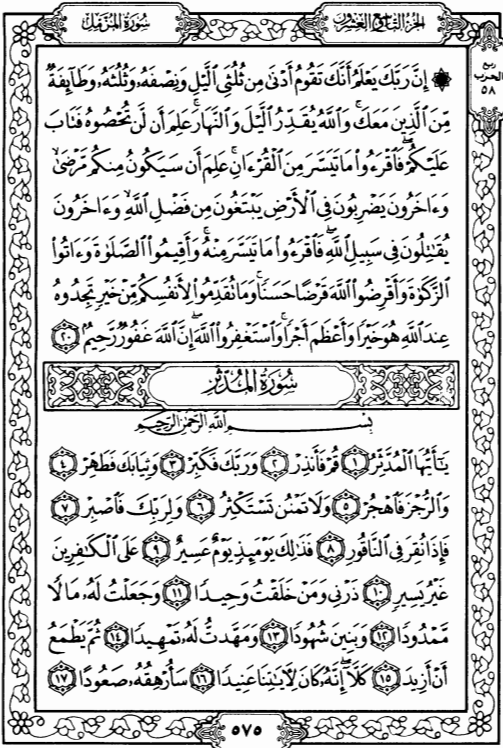 سُورَةُ المُزَّمِّل
الجزءُ التاسِعُ والعِشرُون
رُبع
الحزب
٥٨
۞ إِنَّ رَبَّكَ يَعْلَمُ أَنَّكَ تَقُومُ أَدْنَىٰ مِن ثُلُثَيِ ٱلَّيْلِ وَنِصْفَهُۥ وَثُلُثَهُۥ وَطَآئِفَةٌ
مِّنَ ٱلَّذِينَ مَعَكَۚ وَٱللَّهُ يُقَدِّرُ ٱلَّيْلَ وَٱلنَّهَارَۚ عَلِمَ أَن لَّن تُحْصُوهُ فَتَابَ
عَلَيْكُمْۖ فَٱقْرَءُوا۟ مَا تَيَسَّرَ مِنَ ٱلْقُرْءَانِۚ عَلِمَ أَن سَيَكُونُ مِنكُم مَّرْضَىٰۙ
وَءَاخَرُونَ يَضْرِبُونَ فِى ٱلْأَرْضِ يَبْتَغُونَ مِن فَضْلِ ٱللَّهِۙ وَءَاخَرُونَ
يُقَٰتِلُونَ فِى سَبِيلِ ٱللَّهِۖ فَٱقْرَءُوا۟ مَا تَيَسَّرَ مِنْهُۚ وَأَقِيمُوا۟ ٱلصَّلَوٰةَ وَءَاتُوا۟
ٱلزَّكَوٰةَ وَأَقْرِضُوا۟ ٱللَّهَ قَرْضًا حَسَنًاۚ وَمَا تُقَدِّمُوا۟ لِأَنفُسِكُم مِّنْ خَيْرٍ تَجِدُوهُ
عِندَ ٱللَّهِ هُوَ خَيْرًا وَأَعْظَمَ أَجْرًاۚ وَٱسْتَغْفِرُوا۟ ٱللَّهَۖ إِنَّ ٱللَّهَ غَفُورٌ رَّحِيمٌۢ ٢٠
سُورَةُ المُدَّثِّر
بِسْمِ ٱللَّهِ ٱلرَّحْمَٰنِ ٱلرَّحِيمِ
يَٰٓأَيُّهَا ٱلْمُدَّثِّرُ ١ قُمْ فَأَنذِرْ ٢ وَرَبَّكَ فَكَبِّرْ ٣ وَثِيَابَكَ فَطَهِّرْ ٤
وَٱلرُّجْزَ فَٱهْجُرْ ٥ وَلَا تَمْنُن تَسْتَكْثِرُ ٦ وَلِرَبِّكَ فَٱصْبِرْ ٧
فَإِذَا نُقِرَ فِى ٱلنَّاقُورِ ٨ فَذَٰلِكَ يَوْمَئِذٍ يَوْمٌ عَسِيرٌ ٩ عَلَى ٱلْكَٰفِرِينَ
غَيْرُ يَسِيرٍ ١٠ ذَرْنِى وَمَنْ خَلَقْتُ وَحِيدًا ١١ وَجَعَلْتُ لَهُۥ مَالًا
مَّمْدُودًا ١٢ وَبَنِينَ شُهُودًا ١٣ وَمَهَّدتُّ لَهُۥ تَمْهِيدًا ١٤ ثُمَّ يَطْمَعُ
أَنْ أَزِيدَ ١٥ كَلَّآۖ إِنَّهُۥ كَانَ لِءَايَٰتِنَا عَنِيدًا ١٦ سَأُرْهِقُهُۥ صَعُودًا ١٧
٥٧٥